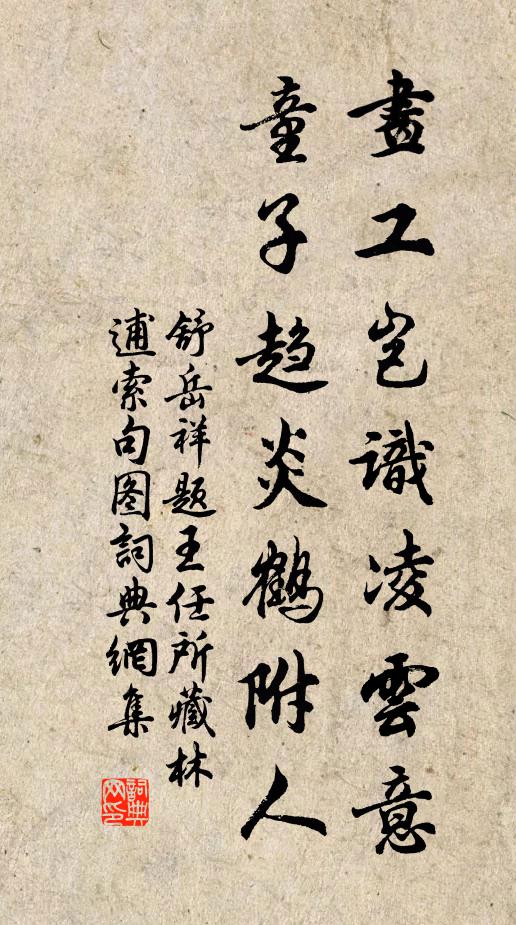 畫工豈識凌雲意
童子趨炎鶴附人
舒岳祥題王任所藏林
逋索句图詞典網集
詞典网印